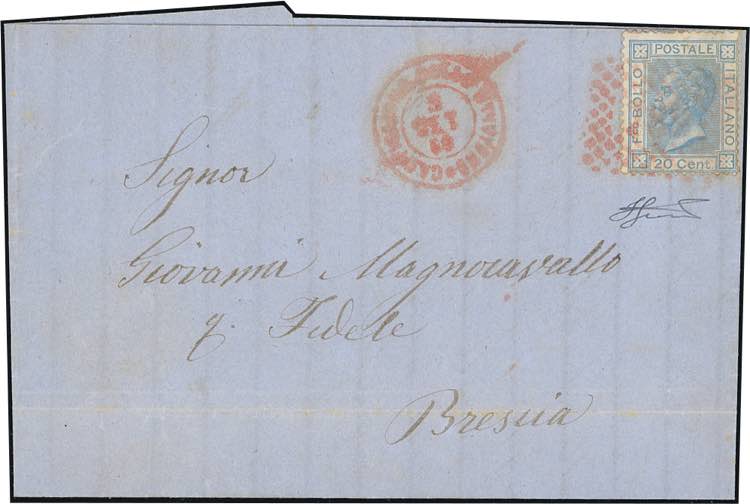 POSTALE
Fco BOLLO
ITALIANO
20 Cent
Signor
Giovanni Magnocavallo
q. Fedele
Brescia